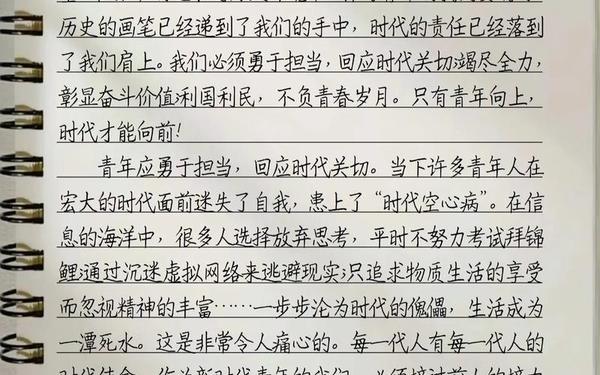 历史的画笔已经递到了我们的手中，时代的责任已经落到
了我们肩上。我们必须勇于担当，回应时代关切；竭尽全力，
彰显奋斗价值；利国利民，不负青春岁月。只有青年向上，
时代才能向前！
青年应勇于担当，回应时代关切。当下许多青年人在
宏大的时代面前迷失了自我，患上了“时代空心病”。在信
息的海洋中，很多人选择放弃思考，平时不努力考试拜锦
鲤；通过沉迷虚拟网络来逃避现实；只追求物质生活的享受
而忽视精神的丰富……一步步沦为时代的傀儡，生活成为
一潭死水。这是非常令人痛心的。每一代人有每一代人的